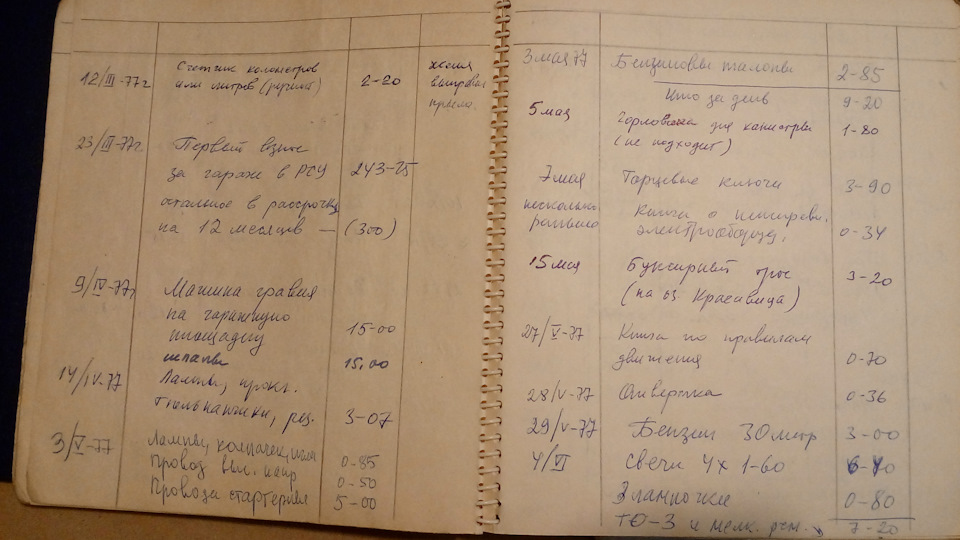 12/III-77г Счетчик колометров 2-20
или литров (ручита)
23/III-77г. Первый взнос
за гараж в РСУ 243-75
остальное в рассрочку
на 12 месяцев — (300)
9/IV-77г Машина гравия
на гаражную
площадку 15-00
шпалы 15.00
14/IV-77 Лампы, прокл.
Тюльпанчики, рез. 3-07
3/V-77 Лампы, 0-85
Провод выс. напр 0-50
Провода стартерные 5-00
3 мая 77 Бензиновые талоны 2-85
Итого за день 9-20
5 мая Горловина для канистры 1-80
(не подходит)
7 мая Торцевые ключи 3-90
несколько раньше Книга о
электрооборуд. 0-34
15 мая Буксирный трос 3-20
(на оз. Красавица)
27/V-77 Книга по правилам
движения 0-70
28/V-77 Отвертка 0-36
29/V-77 Бензин 30 литр 3-00
4/VI Свечи 4х1-60 6-40
3 лампочки 0-80
ТО-3 и мелк. рем. 7-20